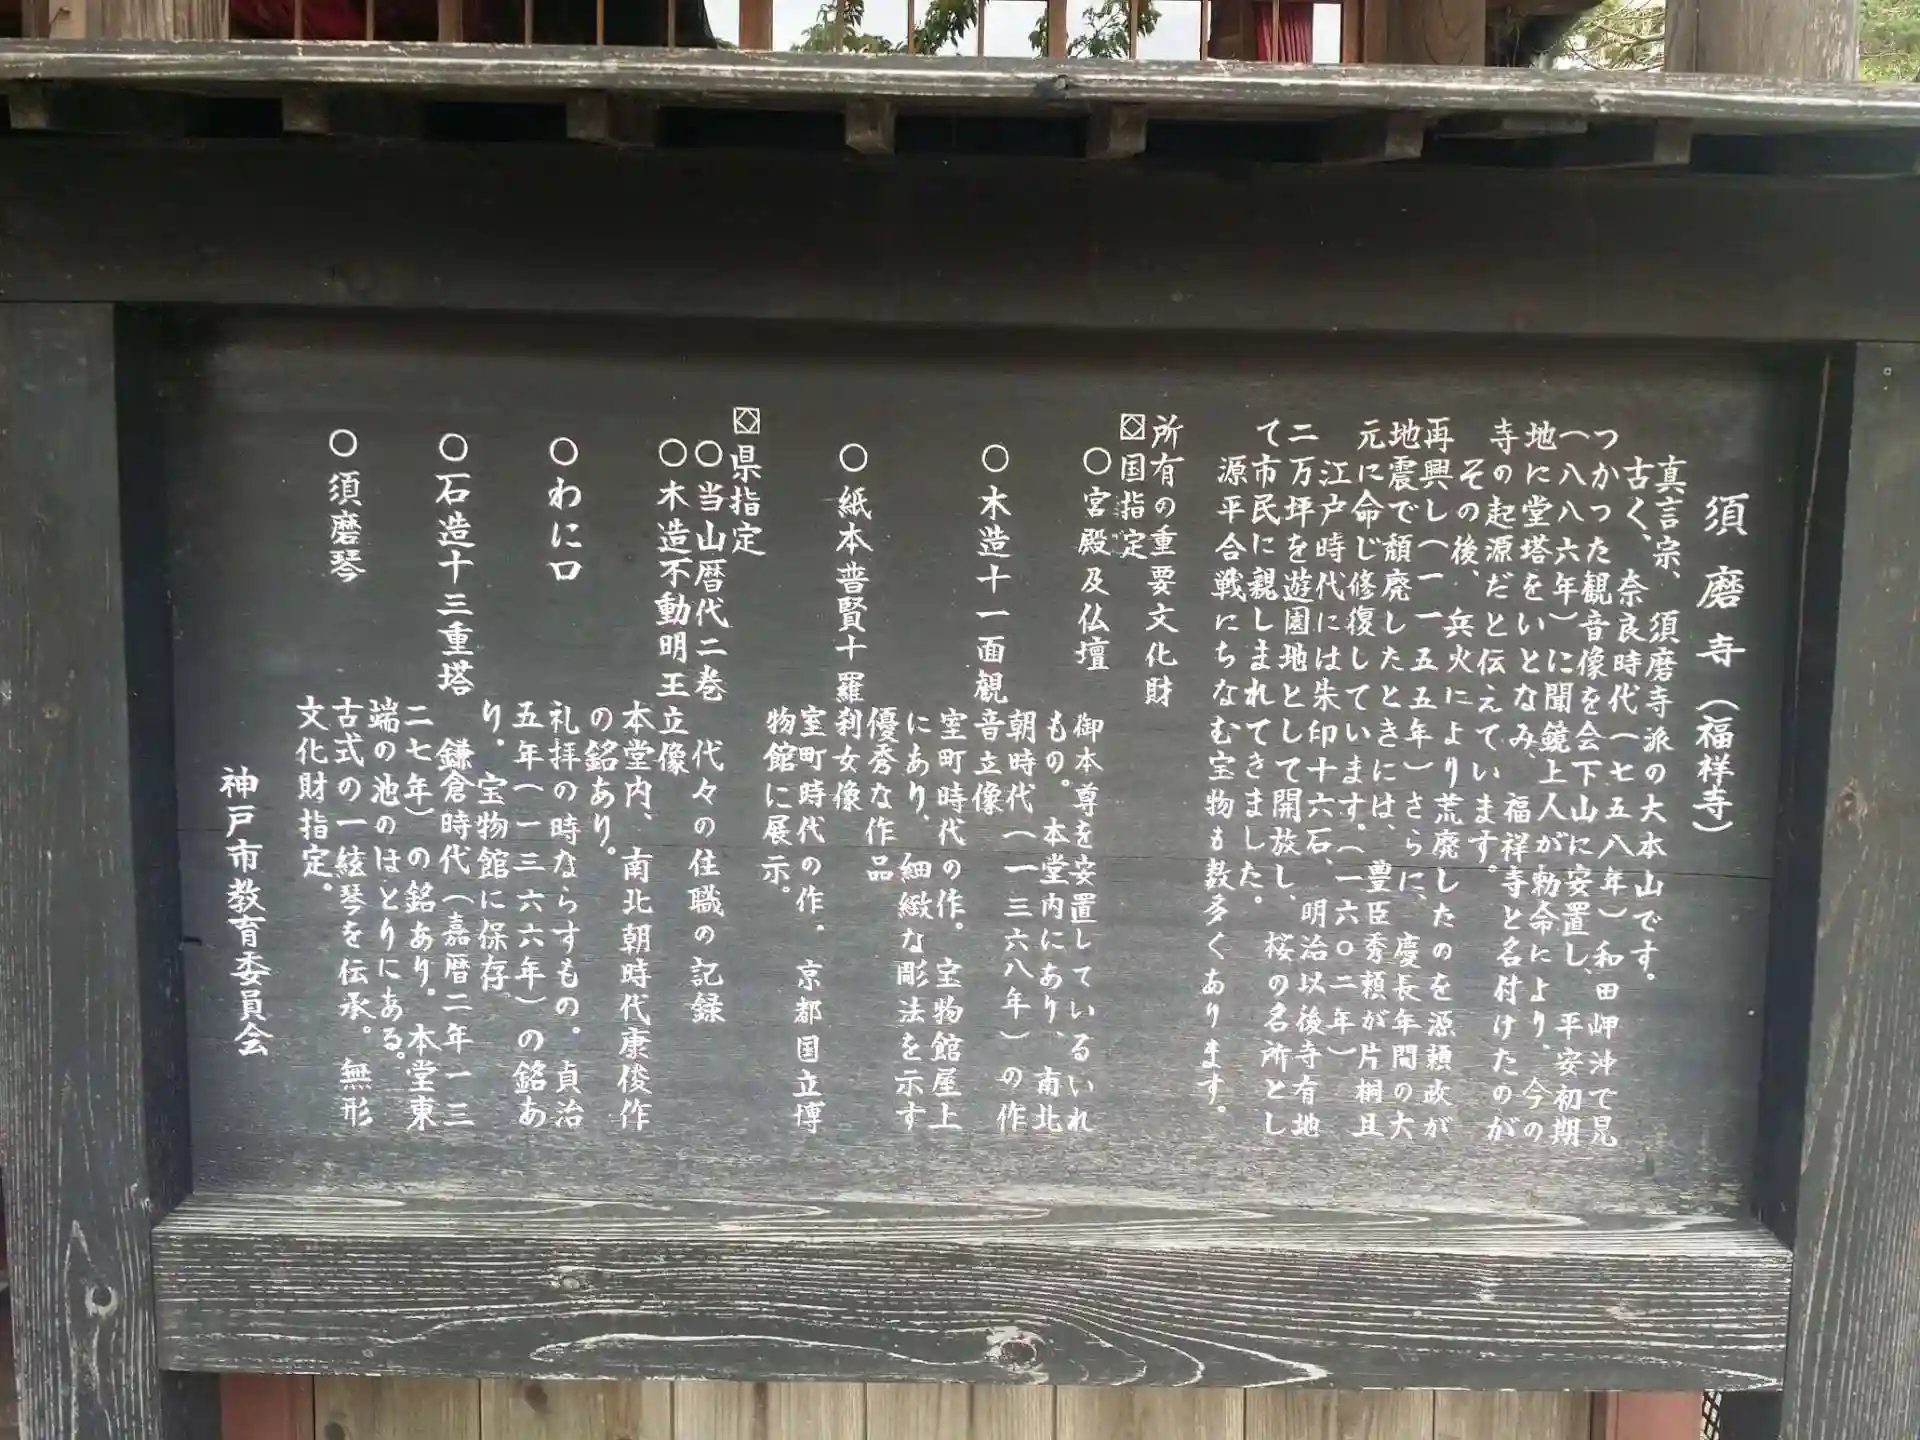 須磨寺(福祥寺)
真言宗、須磨寺派の大本山です。
古く、奈良時代(七五八年)和田岬沖で見
つかった観音像を会下山に安置し、平安初期
(八八六年)に聞鏡上人が勅命により、今の
地に堂塔をいとなみ、福祥寺と名付けたのが
寺の起源だと伝えています。
その後、兵火により荒廃したのを源頼政が
再興し(一一五五年)さらに、慶長年間の大
地震で頽廃したときには、豊臣秀頼が片桐且
元に命じ修復しています。(一六〇二年)
江戸時代には朱印十六石、明治以後寺有地
二万坪を遊園地として開放し、桜の名所とし
て市民に親しまれてきました。
源平合戦にちなむ宝物も数多くあります。
所有の重要文化財
国指定
○宮殿及仏壇
御本尊を安置しているいれ
もの。本堂内にあり、南北
朝時代(一三六八年)の作
○木造十一面観音立像
室町時代の作。宝物館屋上
にあり、細緻な彫法を示す
優秀な作品
○紙本普賢十羅刹女像
室町時代の作．京都国立博
物館に展示。
県指定
○当山暦代二巻 代々の住職の記録
○木造不動明王立像
本堂内、南北朝時代康俊作
の銘あり。
○わに口
礼拝の時ならすもの。貞治
五年(一三六六年)の銘あ
り．宝物館に保存
○石造十三重塔
鎌倉時代(嘉暦二年一三
二七年)の銘あり。本堂東
端の池のほとりにある。
○須磨琴
古式の一絃琴を伝承。無形
文化財指定。
神戸市教育委員会